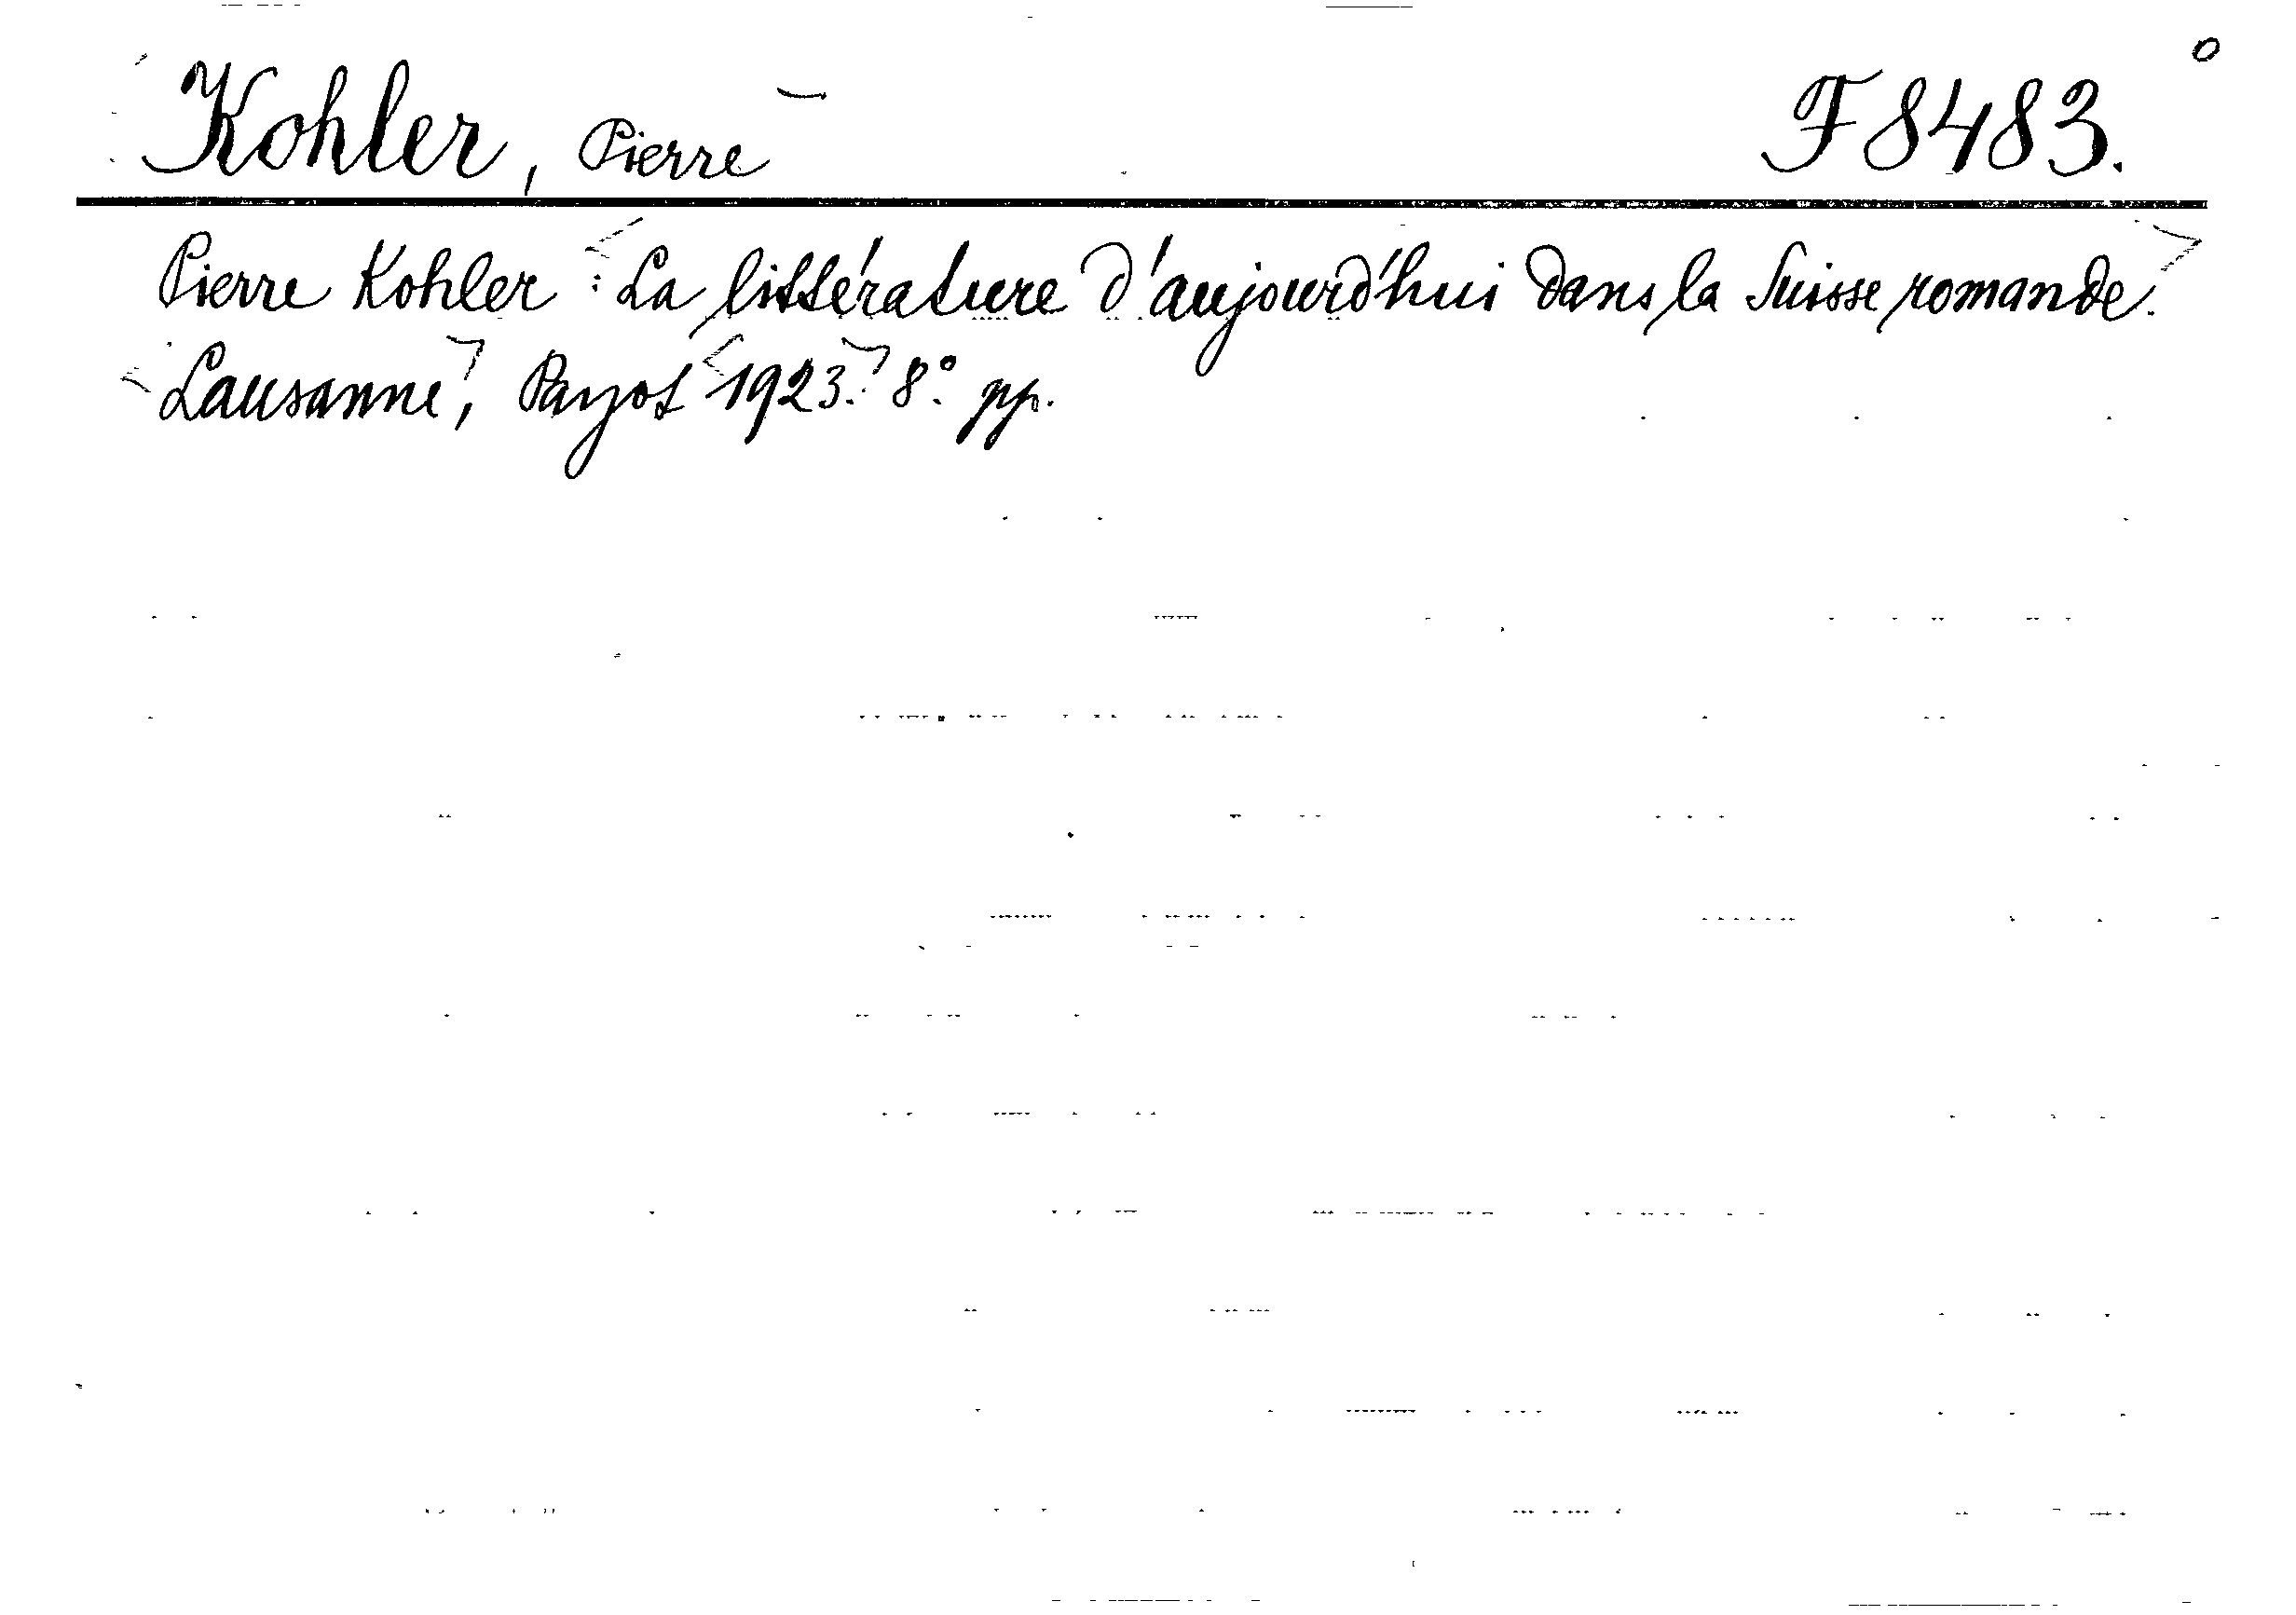 Kohler, Pierre F 8483.
Pierre Kohler : La littérature d'aujourd'hui dans la Suisse romande.
Lausanne, Payot 1923. 8° pp.